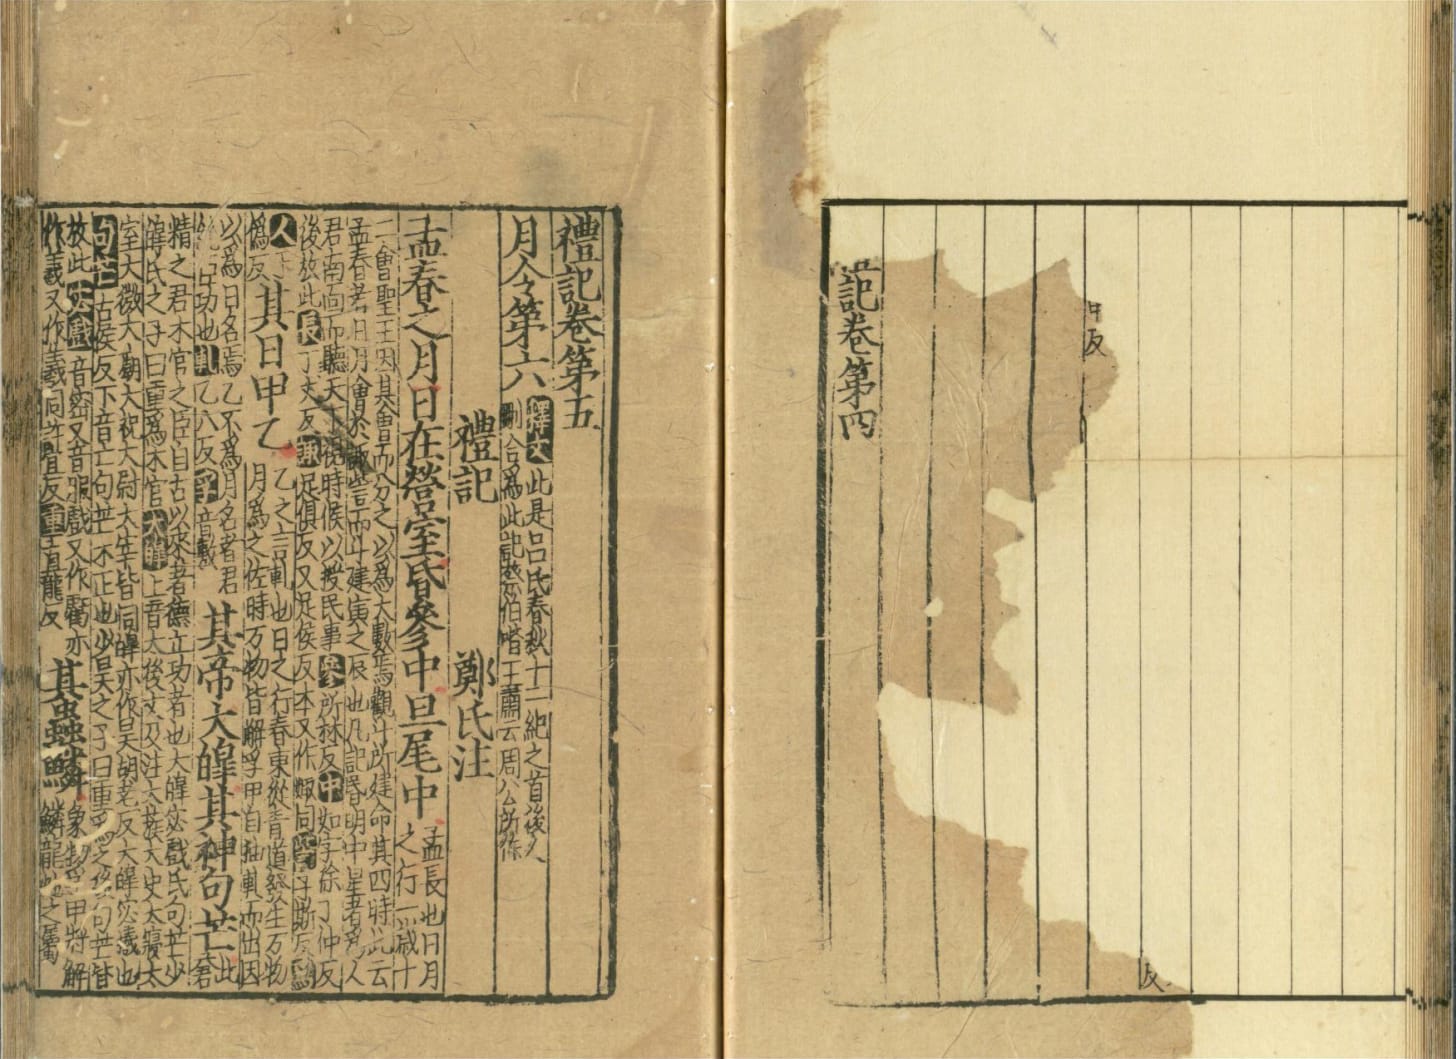 記卷第四
反
反
禮記卷第五
月令第六 釋文此是呂氏春秋十二紀之首後人
刪合為此記蔡伯喈王肅云周公所作
禮記 鄭氏注
孟春之月日在營室昏參中旦尾中 孟長也日月
之行一歲十
二會聖王因其會而分之以為大數焉觀斗所建命其四時此云
孟春者日月會於諏訾而斗建寅之辰也凡記昏明中星者為人
君南面而聽天下視時候以授民事參所林反中如字徐丁仲反
後放此長丁丈反諏足俱反又足侯反本又作娵同訾子斯反為
人
偽反 其日甲乙 乙之言軋也日之行春東從青道發生万物
月為之佐時万物皆解孚甲自抽軋而出因
以為日名焉乙不為月名者君
統臣功也軋乙八反孚音敷 其帝大皥其神句芒 此
蒼
精之君木官之臣自古以來著德立功者也大皥宓戲氏句芒少
皥氏之子曰重為木官大皥上音太後文及注大蔟大史大寢太
室大微大廟大祝大尉大宰皆同皥亦作昊胡老反大皥宓羲也
句芒古侯反下音亡句芒木正也少昊之子曰重為之後句芒皆
放此宓戲音密又音服戲又作虧亦
作羲又作羲同許宜反重直龍反 其蟲鱗 象物孚甲將解
鱗龍蛇之屬